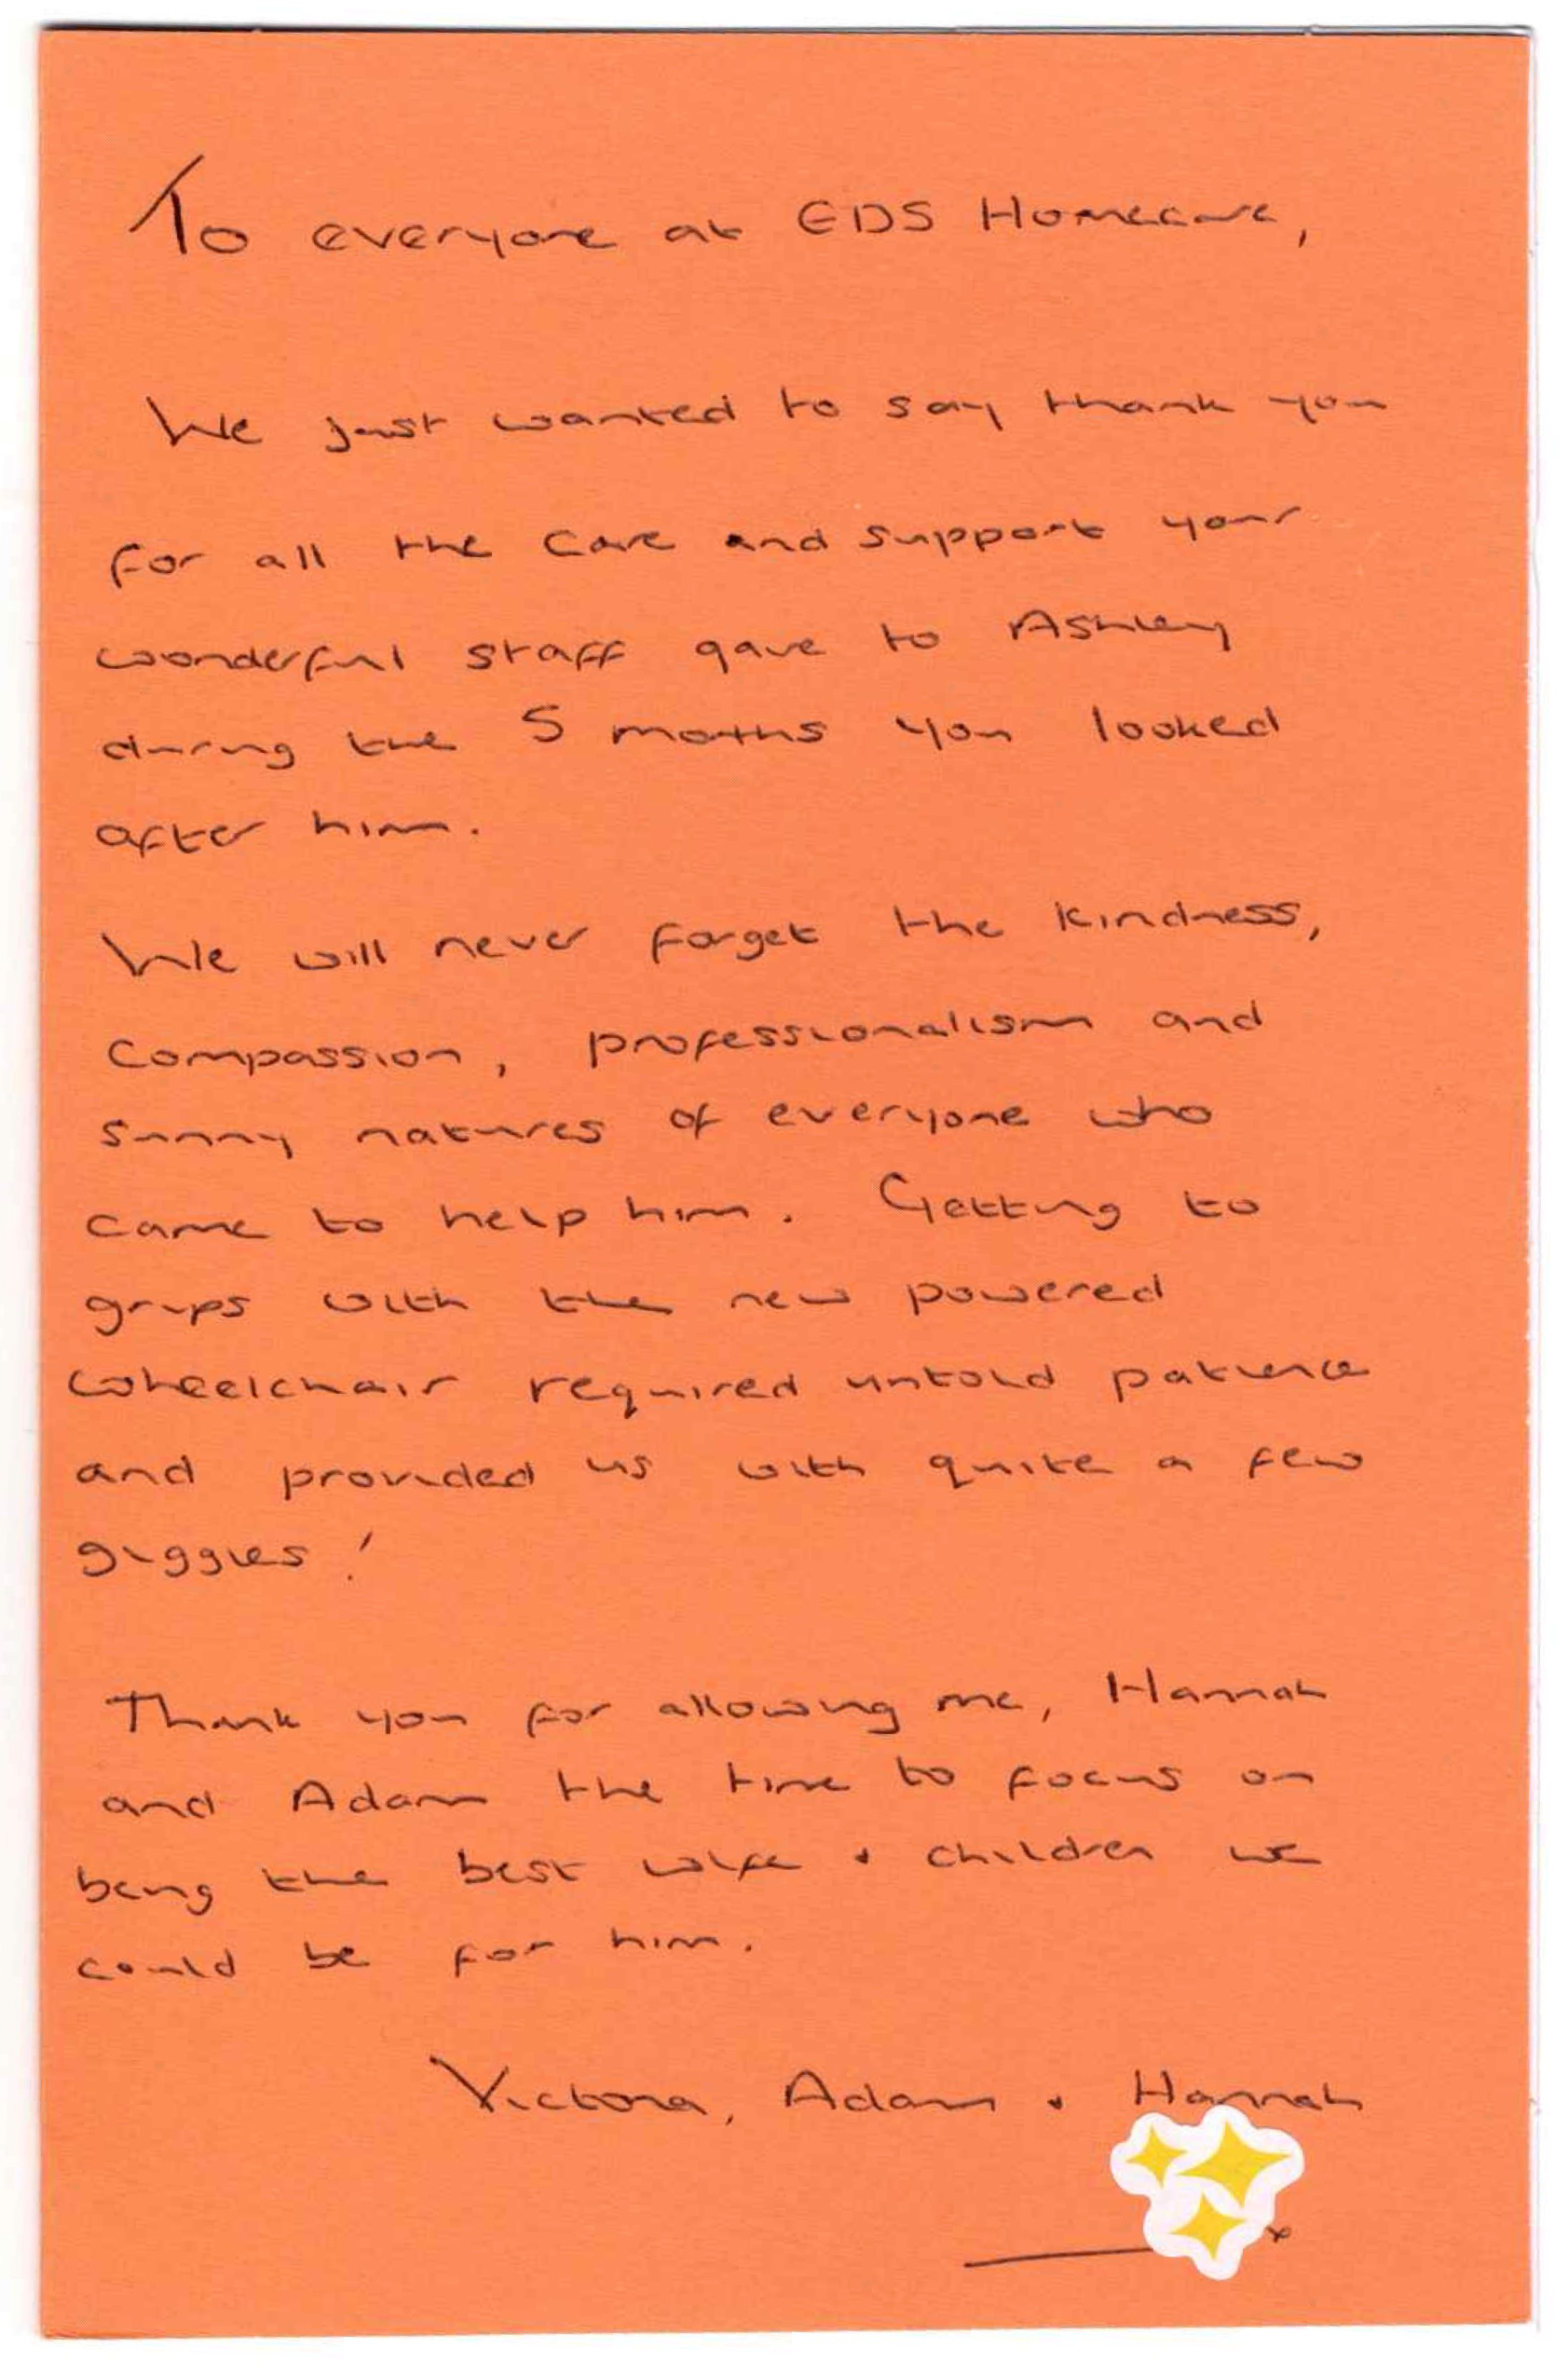 To everyone at EDS Homecare,
We just wanted to say thank you
for all the care and support your
wonderful staff gave to Ashley
during the 5 months you looked
after him.
We will never forget the kindness,
compassion, professionalism and
sunny natures of everyone who
came to help him. Getting to
grips with the new powered
wheelchair required untold patience
and provided us with quite a few
giggles!
Thank you for allowing me, Hannah
and Adam the time to focus on
being the best wife + children we
could be for him.
Victoria, Adam + Hannah
x